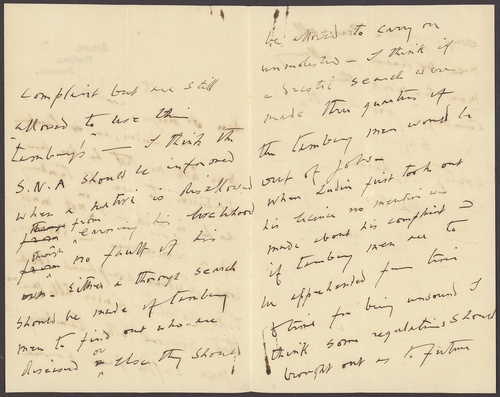 complaint but are still
allowed to use their
"tamburys" — I think the
S.N.A should be informed
when a native is disallowed
from earning his livelihood
through no fault of his
own. Either a through search
should be made of tambury
men to find out who are
diseased or else they should
be allowed to carry on
unmolested — I think if
a drastic search were
made three quarters of
the tambury men would be
out of jobs —
When Ludin first took out
his licence no mention was
made about his complaint &
if tambury men are to
be apprehended from time
to time for being unsound I
think some regulations should
brought out as to future